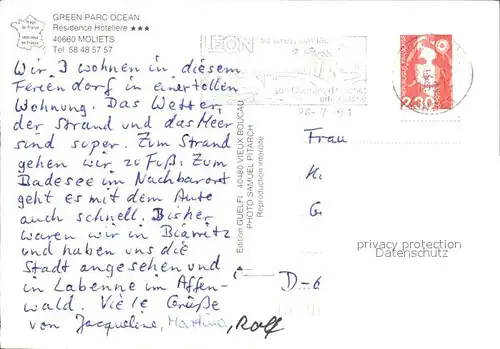 GREEN PARC OCEAN
Résidence Hotelière ★★★
40660 MOLIETS
Tel. 58 48 57 57
Wir 3 wohnen in diesem
Feriendorf in einer tollen
Wohnung. Das Wetter,
der Strand und das Meer
sind super. Zum Strand
gehen wir zu Fuß. Zum
Badesee im Nachbarort
geht es mit dem Auto
auch schnell. Bisher
waren wir in Biarritz
und haben uns die
Stadt angesehen und
in Labenne im Affen-
wald. Viele Grüße
von Jacqueline, Martina, Rolf
Edition GUELFI 40480 VIEUX BOUCAU
PHOTO SAMUEL PITARCH
Reproduction interdite
LEON
son lac
26-7
2,30
Frau
D-6
privacy protection
Datenschutz